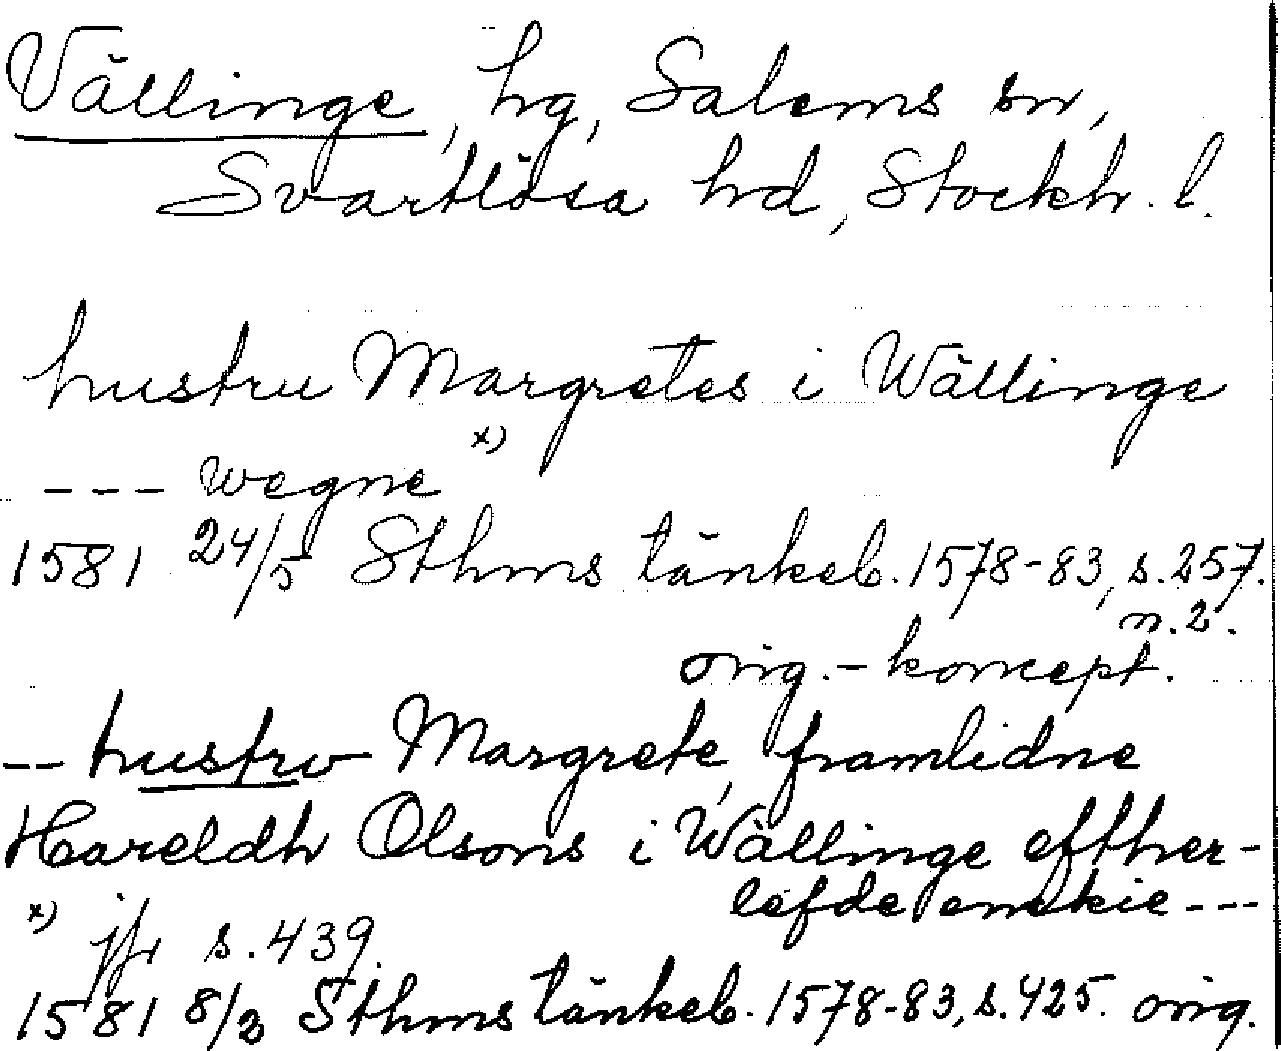 Vällinge, hg, Salems sn,
Svartlösa hd, Stockh. l.
hustru Margretes i Wällinge
--- wegne x)
1581 24/5 Sthms tänkeb. 1578-83, s. 257.
n. 2.
orig. - koncept.
-- hustrv Margrete, framlidne
Hareldh Olsons i Wällinge effther-
lefde enckie ---
x) jfr s. 439.
1581 8/2 Sthms tänkeb. 1578-83, s. 425. orig.